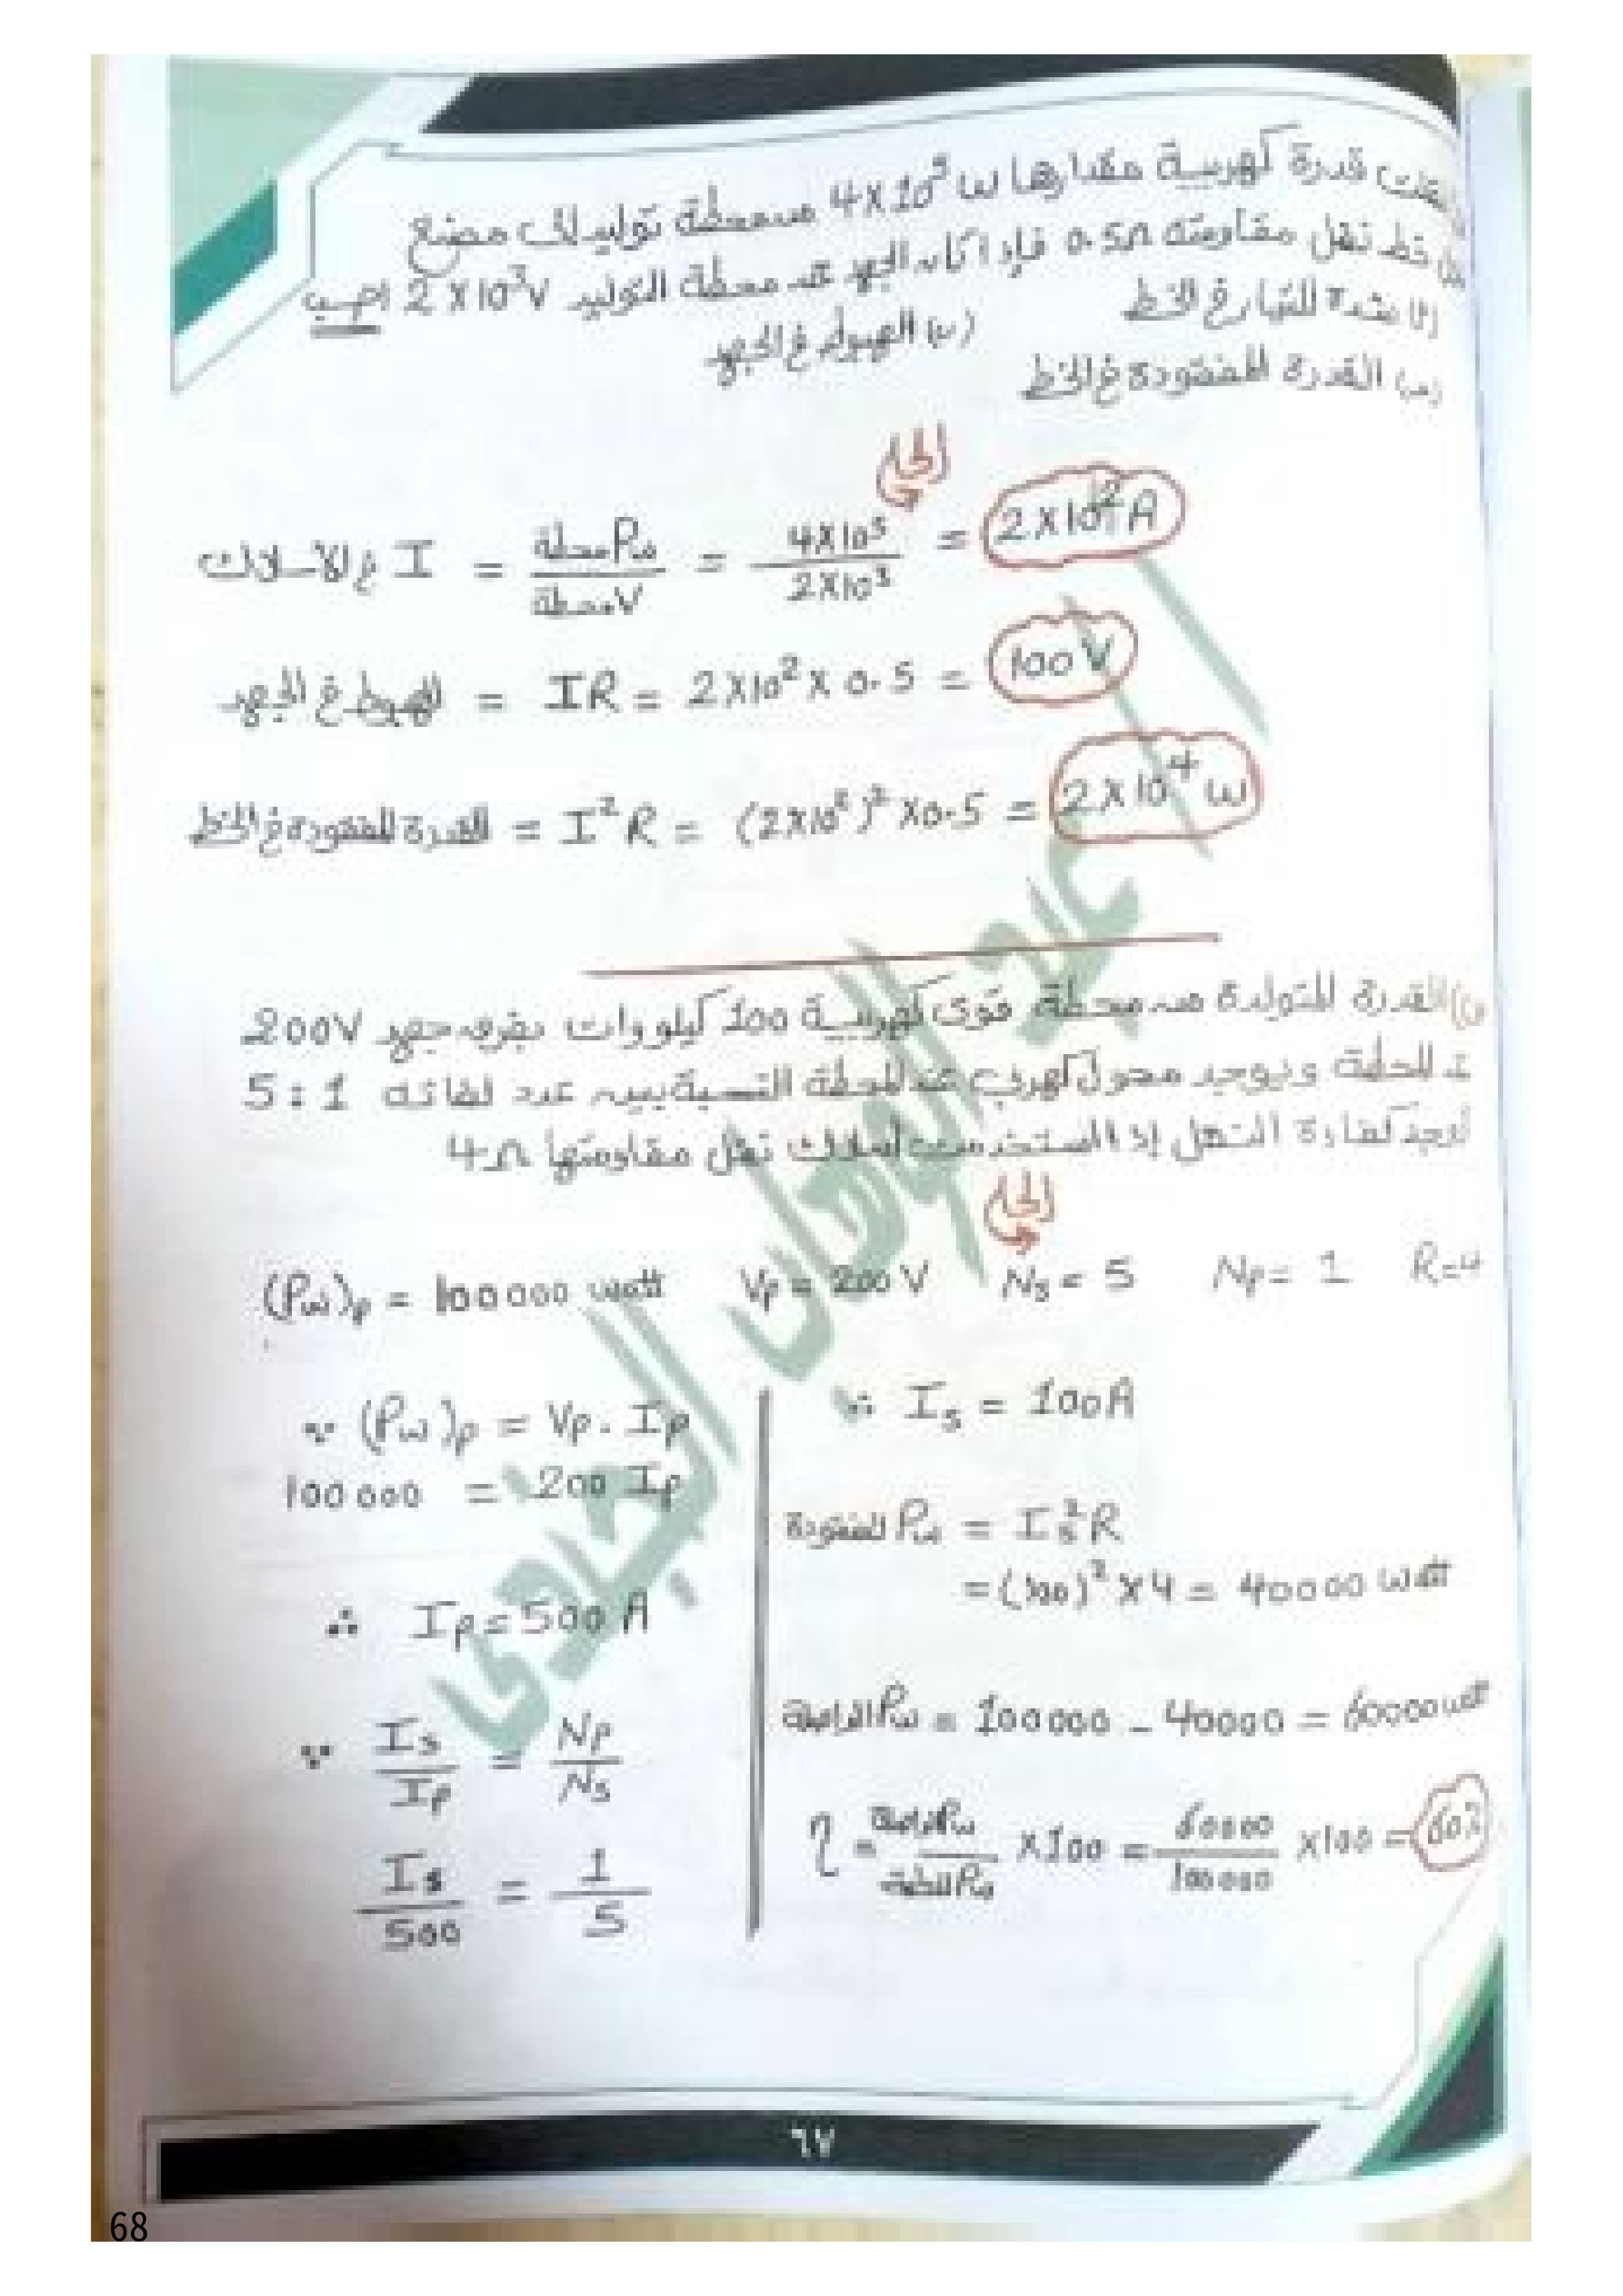 نقلت قدرة كهربية مقدارها 4X10⁵ w من محطة توليد إلى مصنع
خلال خط نقل مقاومته 0.5Ω فإذا كان الجهد عند محطة التوليد 2X10³V احسب
(ا) شدة التيار في الخط (ب) الهبوط في الجهد
(جـ) القدرة المفقودة في الخط
(الحل)
I في الأسلاك = Pw محطة / V محطة = 4X10⁵ / 2X10³ = 2X10² A
الهبوط في الجهد = IR = 2X10² X 0.5 = 100 V
القدرة المفقودة في الخط = I²R = (2X10²)² X0.5 = 2X10⁴ w
س) القدرة المتولدة من محطة قوى كهربية 100 كيلووات بفرق جهد 200V
عند المحطة ويوجد محول كهربي عند المحطة النسبة بين عدد لفاته 5:1
أوجد كفاءة النقل إذا استخدمت أسلاك نقل مقاومتها 4Ω
(الحل)
(Pw)p = 100000 watt Vp = 200 V Ns = 5 Np = 1 R=4
∵ (Pw)p = Vp . Ip
100000 = 200 Ip
∴ Ip = 500 A
∵ Is / Ip = Np / Ns
Is / 500 = 1 / 5
∴ Is = 100A
Pw المفقودة = Is²R
= (100)² X4 = 40000 watt
Pw = 100000 - 40000 = 60000 watt
η = Pw / Pw المحطة X100 = 60000 / 100000 X100 = 60%
عبد الرحمن
٦٧
68